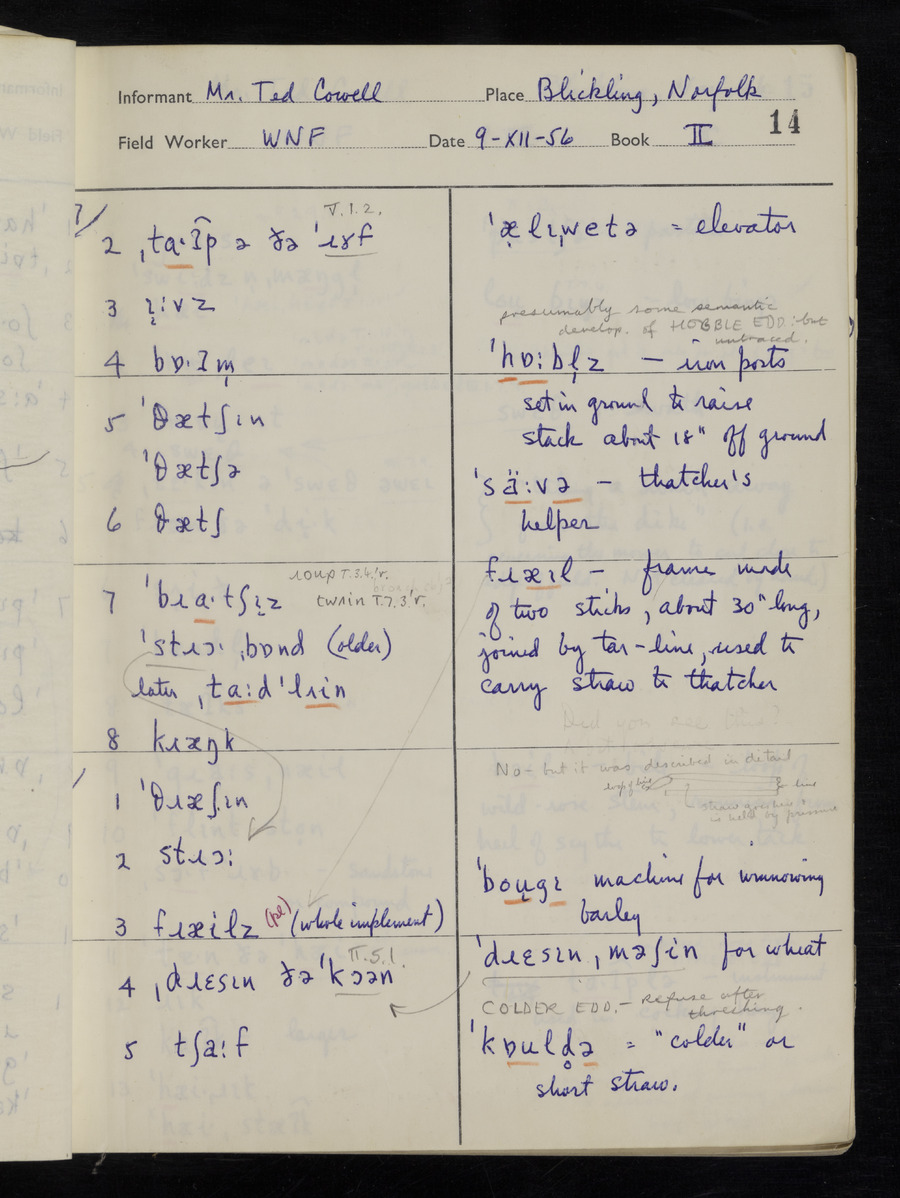 Informant Mr. Ted Cowell Place Blickling, Norfolk
14
Field Worker WNF Date 9-XII-56 Book II
7/
V.1.2.
2 ˌta·ɪ̂p ə ðə ˈɹɤf
3 ɪ̜:vz
4 bɒ·ɪm̩
5 ˈθætʃɪn
ˈθætʃə
6 θætʃ
ɹoup T.3.4.'r.
7 ˈbɹa·tʃɪ̜z twɹin T.7.3.'r.
ˈstɹɔ· ˌbɒnd (older)
later ˌta:dˈlɹin
8 kɹæŋk
/
1 ˈθɹæʃɪn
2 stɹɔ:
3 fɹæilz (pl) (whole implement)
II.5.1.
4 ˌdɹɛsɪn ðə ˈkɔən
5 tʃa:f
ˈæ̣lɪˌwetə = elevator
presumably some semantic
develop. of HOBBLE EDD: but
untraced.
ˈhɒ:bl̩z — iron posts
set in ground to raise
stack about 18" off ground
ˈsä:və — thatcher's
helper
fɹæɪl — frame made
of two sticks, about 30" long,
joined by tar-line, used to
carry straw to thatcher
Did you see this?
No - but it was described in detail
for line
straw gathered
is held by pressure
ˈbougɪ machine for winnowing
barley
ˈdɹɛsɪn, məʃin for wheat
COLDER EDD. - refuse after
threshing.
ˈkɒuld̥ə = "colder" or
short straw.